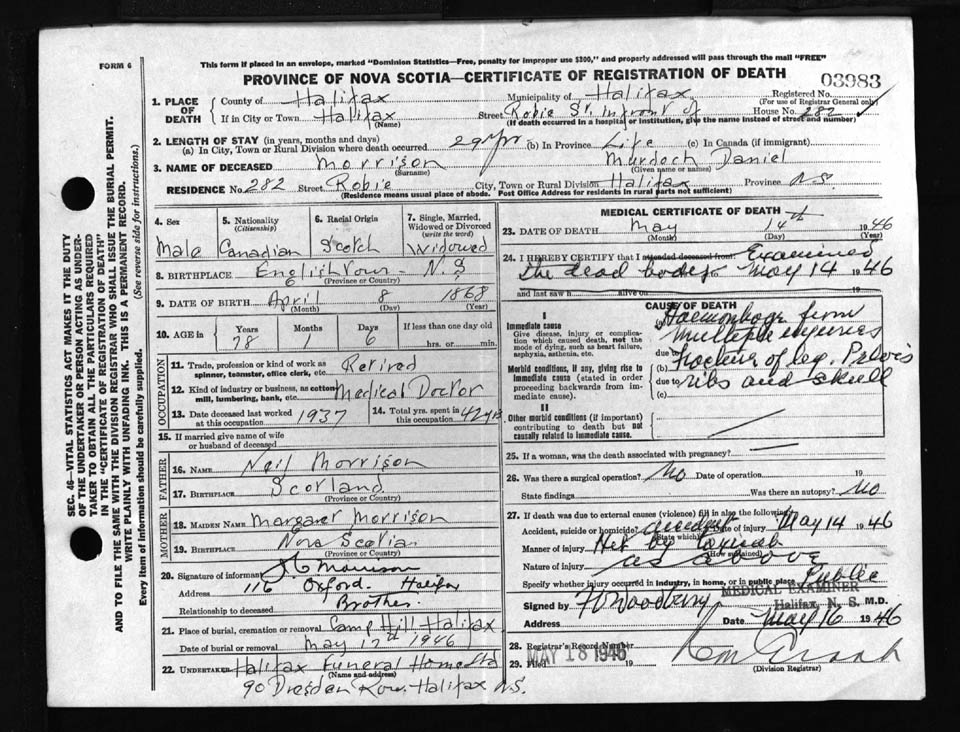 This form if placed in an envelope, marked "Dominion Statistics—Free, penalty for improper use $300," and properly addressed will pass through the mail "FREE"
FORM 6
PROVINCE OF NOVA SCOTIA—CERTIFICATE OF REGISTRATION OF DEATH
03983
1. PLACE OF DEATH
County of Halifax
Municipality of Halifax
Registered No.
(For use of Registrar General only)
If in City or Town Halifax (Name)
Street Robie St. infront of House No. 282
(If death occurred in a hospital or institution, give the name instead of street and number)
2. LENGTH OF STAY (in years, months and days)
(a) In City, Town or Rural Division where death occurred 29 yrs (b) In Province Life (c) In Canada (if immigrant)
3. NAME OF DECEASED Morrison Murdoch Daniel
(Surname) (Given name or names)
RESIDENCE No. 282 Street Robie City, Town or Rural Division Halifax Province N.S.
(Residence means usual place of abode. Post Office Address for residents in rural parts not sufficient)
4. Sex Male
5. Nationality (Citizenship) Canadian
6. Racial Origin Scotch
7. Single, Married, Widowed or Divorced (write the word) Widowed
8. BIRTHPLACE Englishtown - N.S
(Province or Country)
9. DATE OF BIRTH April 8 1868
(Month) (Day) (Year)
10. AGE in
Years 78
Months 1
Days 6
If less than one day old
hrs. or min.
OCCUPATION
11. Trade, profession or kind of work as spinner, teamster, office clerk, etc. Retired
12. Kind of industry or business, as cotton-mill, lumbering, bank, etc. Medical Doctor
13. Date deceased last worked at this occupation 1937
14. Total yrs. spent in this occupation 42 yrs
15. If married give name of wife or husband of deceased
FATHER
16. NAME Neil Morrison
17. BIRTHPLACE Scotland
(Province or Country)
MOTHER
18. MAIDEN NAME Margaret Morrison
19. BIRTHPLACE Nova Scotia
(Province or Country)
20. Signature of informant Morrison
Address 116 Oxford. Halifax
Relationship to deceased Brother.
21. Place of burial, cremation or removal Camp Hill Halifax
Date of burial or removal May 17th 1946
22. UNDERTAKER Halifax Funeral Home Ltd
(Name and address)
90 Dresden Row. Halifax N.S.
MEDICAL CERTIFICATE OF DEATH
23. DATE OF DEATH May 14th 1946
(Month) (Day) (Year)
24. I HEREBY CERTIFY that I attended deceased from: Examined
the dead body May 14 1946
and last saw h alive on 19
CAUSE OF DEATH
I
Immediate cause
Give disease, injury or complication which caused death, not the mode of dying, such as heart failure, asphyxia, asthenia, etc.
Morbid conditions, if any, giving rise to immediate cause (stated in order proceeding backwards from immediate cause).
II
Other morbid conditions (if important) contributing to death but not causally related to immediate cause.
(a) Haemorrhage from
multiple injuries
due to
(b) fracture of leg. Pelvis
due to ribs and skull
(c)
25. If a woman, was the death associated with pregnancy?
26. Was there a surgical operation? No Date of operation 19
State findings Was there an autopsy? No
27. If death was due to external causes (violence) fill in also the following:
Accident, suicide or homicide? accident (State which) Date of injury May 14 1946
Manner of injury Hit by
(How sustained)
Nature of injury as above
Specify whether injury occurred in industry, in home, or in public place Public
MEDICAL EXAMINER
Signed by Halifax, N. S. M.D.
Address Date May 16 1946
28. Registrar's Record Number
29. Filed MAY 18 1946 19
(Division Registrar)
SEC. 46—VITAL STATISTICS ACT MAKES IT THE DUTY
OF THE UNDERTAKER OR PERSON ACTING AS UNDER-
TAKER TO OBTAIN ALL THE PARTICULARS REQUIRED
IN THE "CERTIFICATE OF REGISTRATION OF DEATH"
AND TO FILE THE SAME WITH THE DIVISION REGISTRAR WHO SHALL ISSUE THE BURIAL PERMIT.
WRITE PLAINLY WITH UNFADING INK. THIS IS A PERMANENT RECORD.
Every item of information should be carefully supplied. (See reverse side for instructions.)